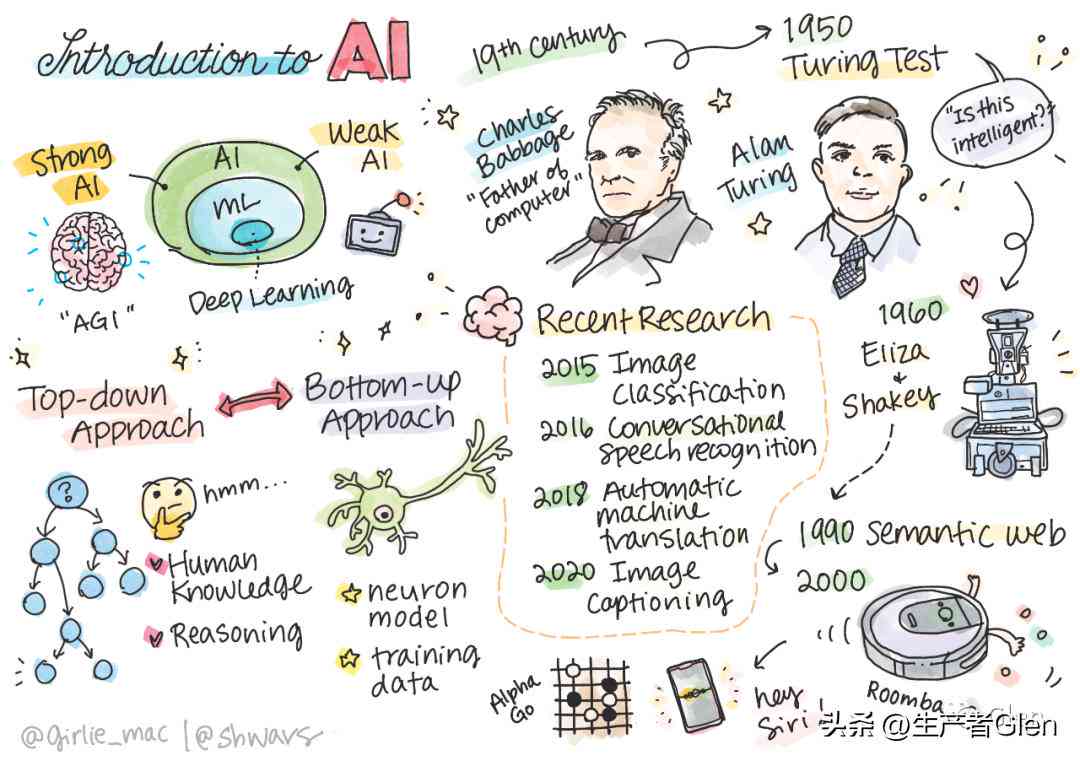 Introduction to AI
Strong
AI
"AGI"
AI
ML
Deep Learning
Weak
AI
19th century
Charles
Babbage
"Father of
computer"
1950
Turing Test
Alan
Turing
"Is this
intelligent?"
1960
Eliza
Shakey
1990 Semantic web
2000
Roomba
hey
Siri!
Alpha
Go
Recent Research
2015 Image
Classification
2016 Conversational
speech recognition
2018 Automatic
machine
translation
2020 Image
Captioning
Top-down
Approach
?
hmm...
Human
Knowledge
Reasoning
Bottom-up
Approach
neuron
model
training
data
@girlie_mac | @shwars
头条 @生产者Glen